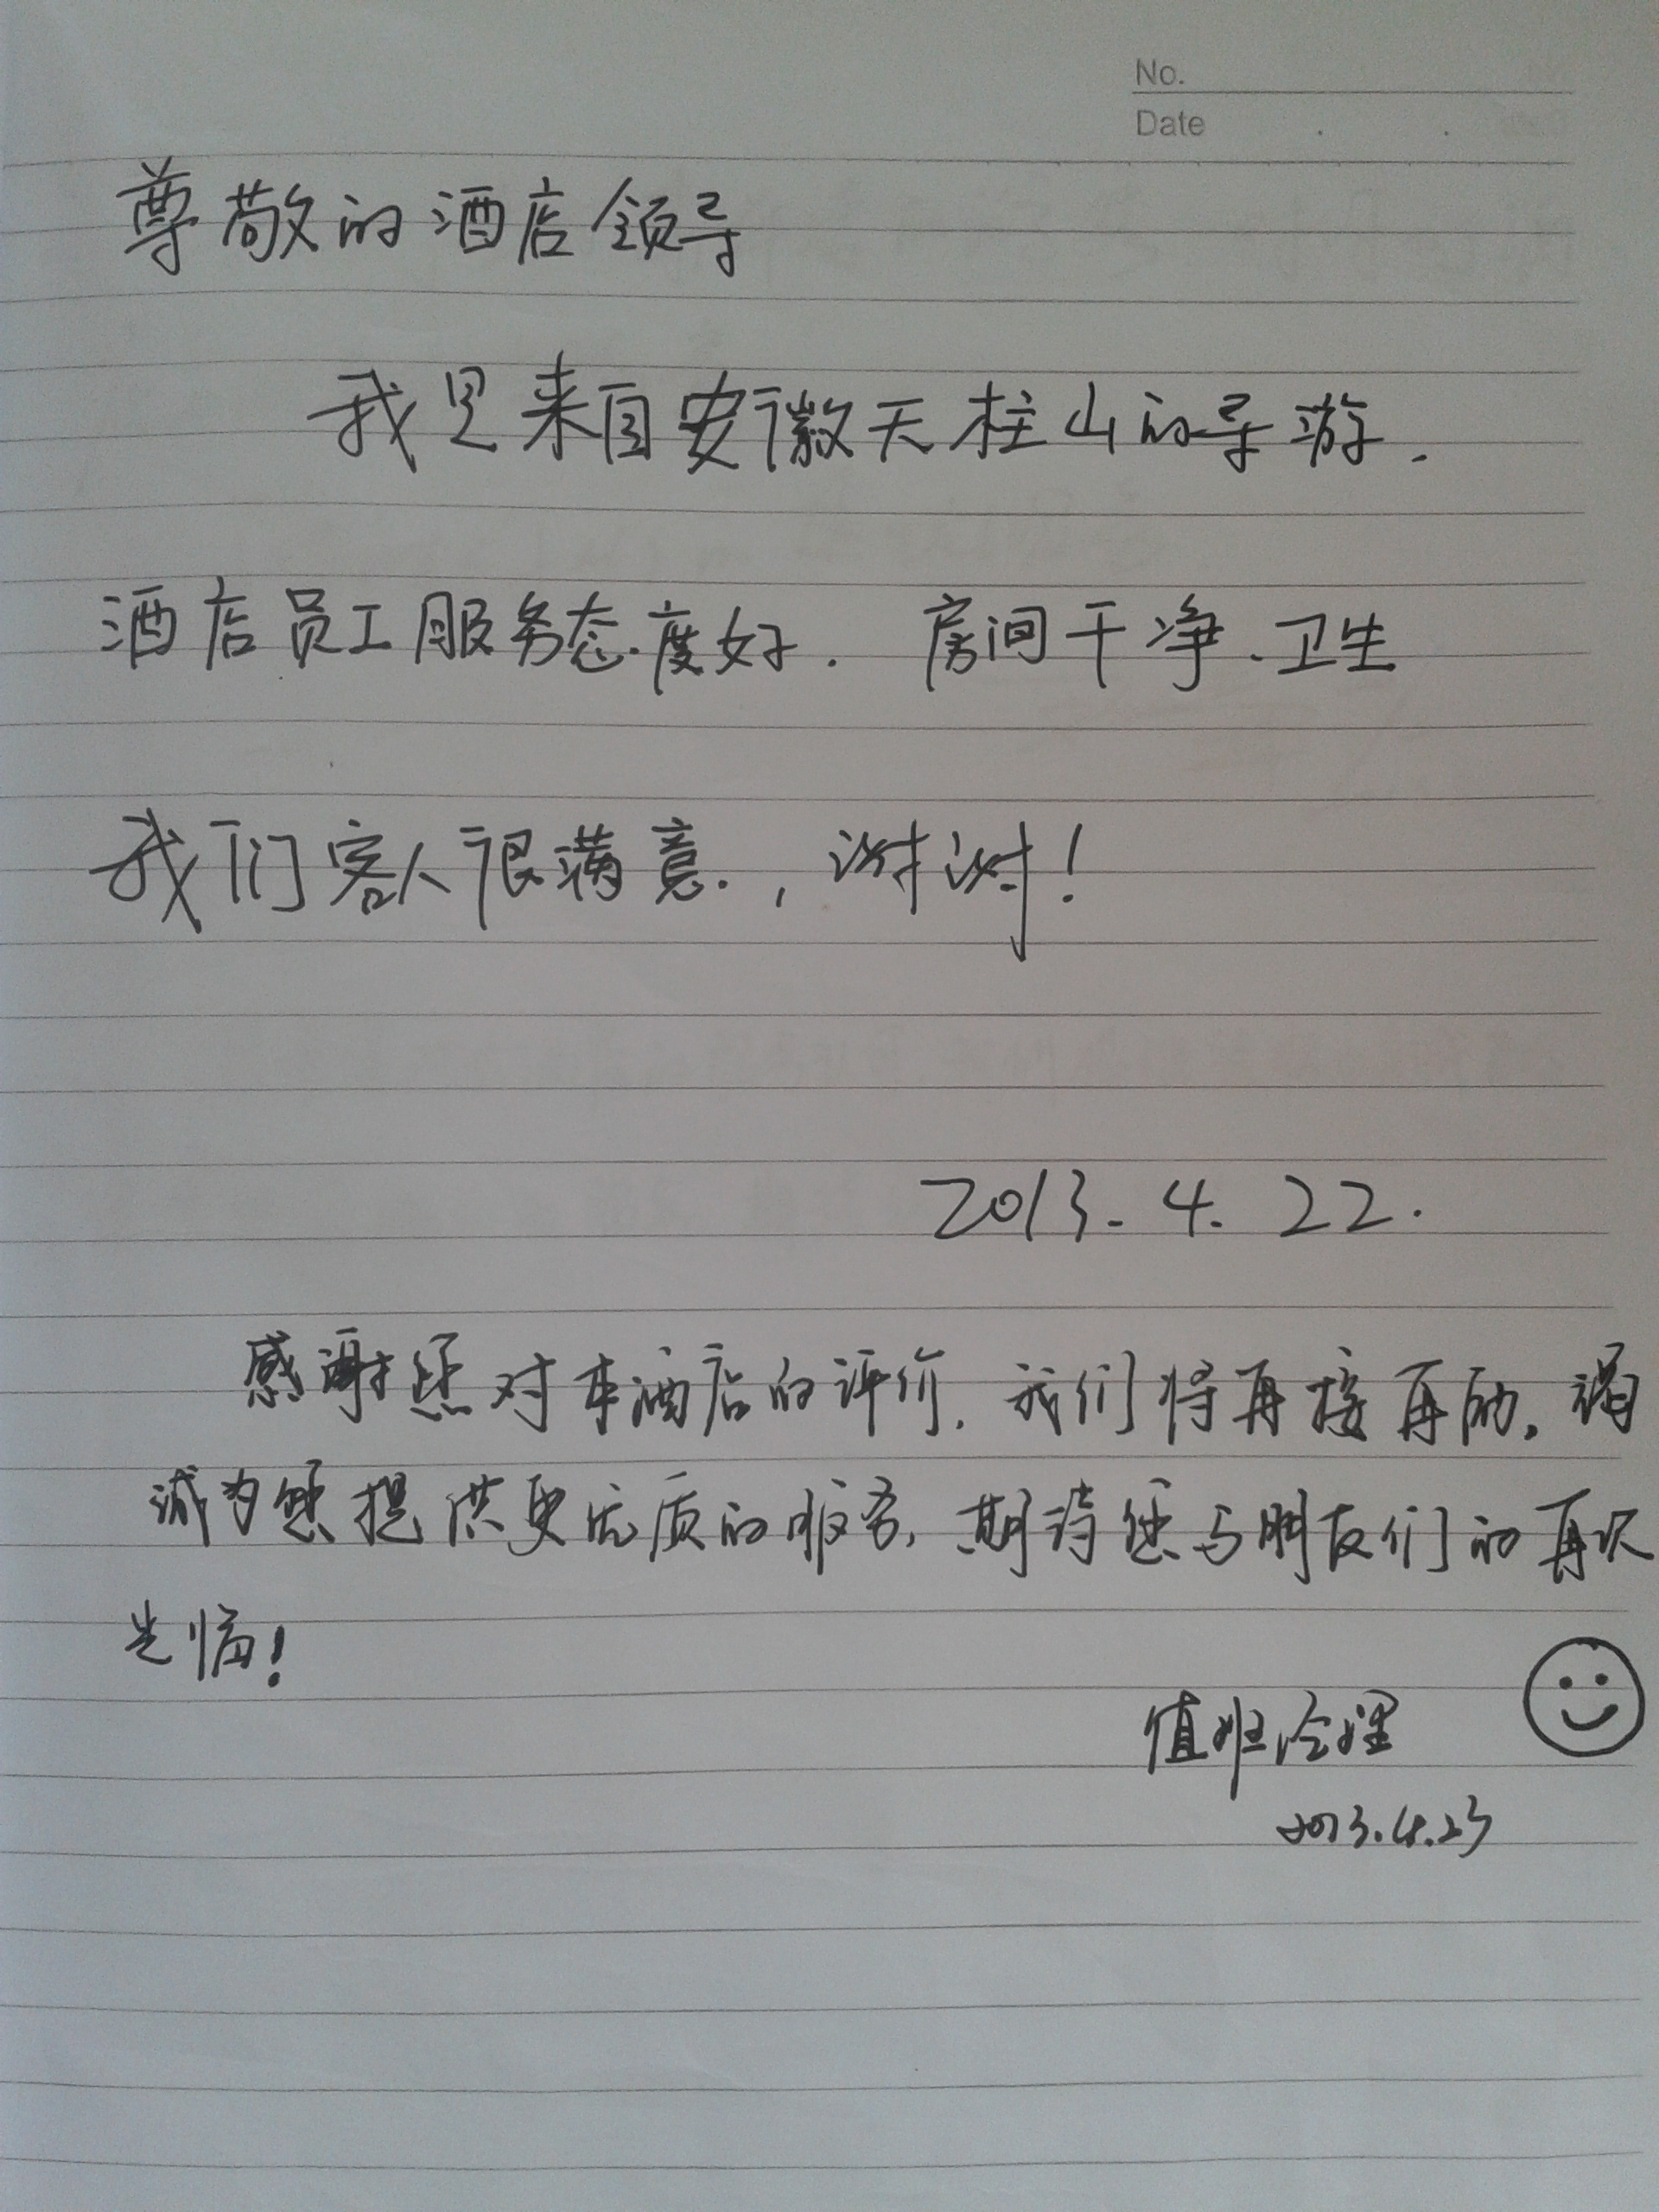 No.
Date . .
尊敬的酒店领导
我是来自安徽天柱山的导游.
酒店员工服务态度好. 房间干净.卫生
我们客人很满意.,谢谢!
2013.4.22.
感谢您对本酒店的评价,我们将再接再励,竭
诚为您提供更优质的服务,期待您与朋友们的再次
光临!
值班经理
2013.4.23